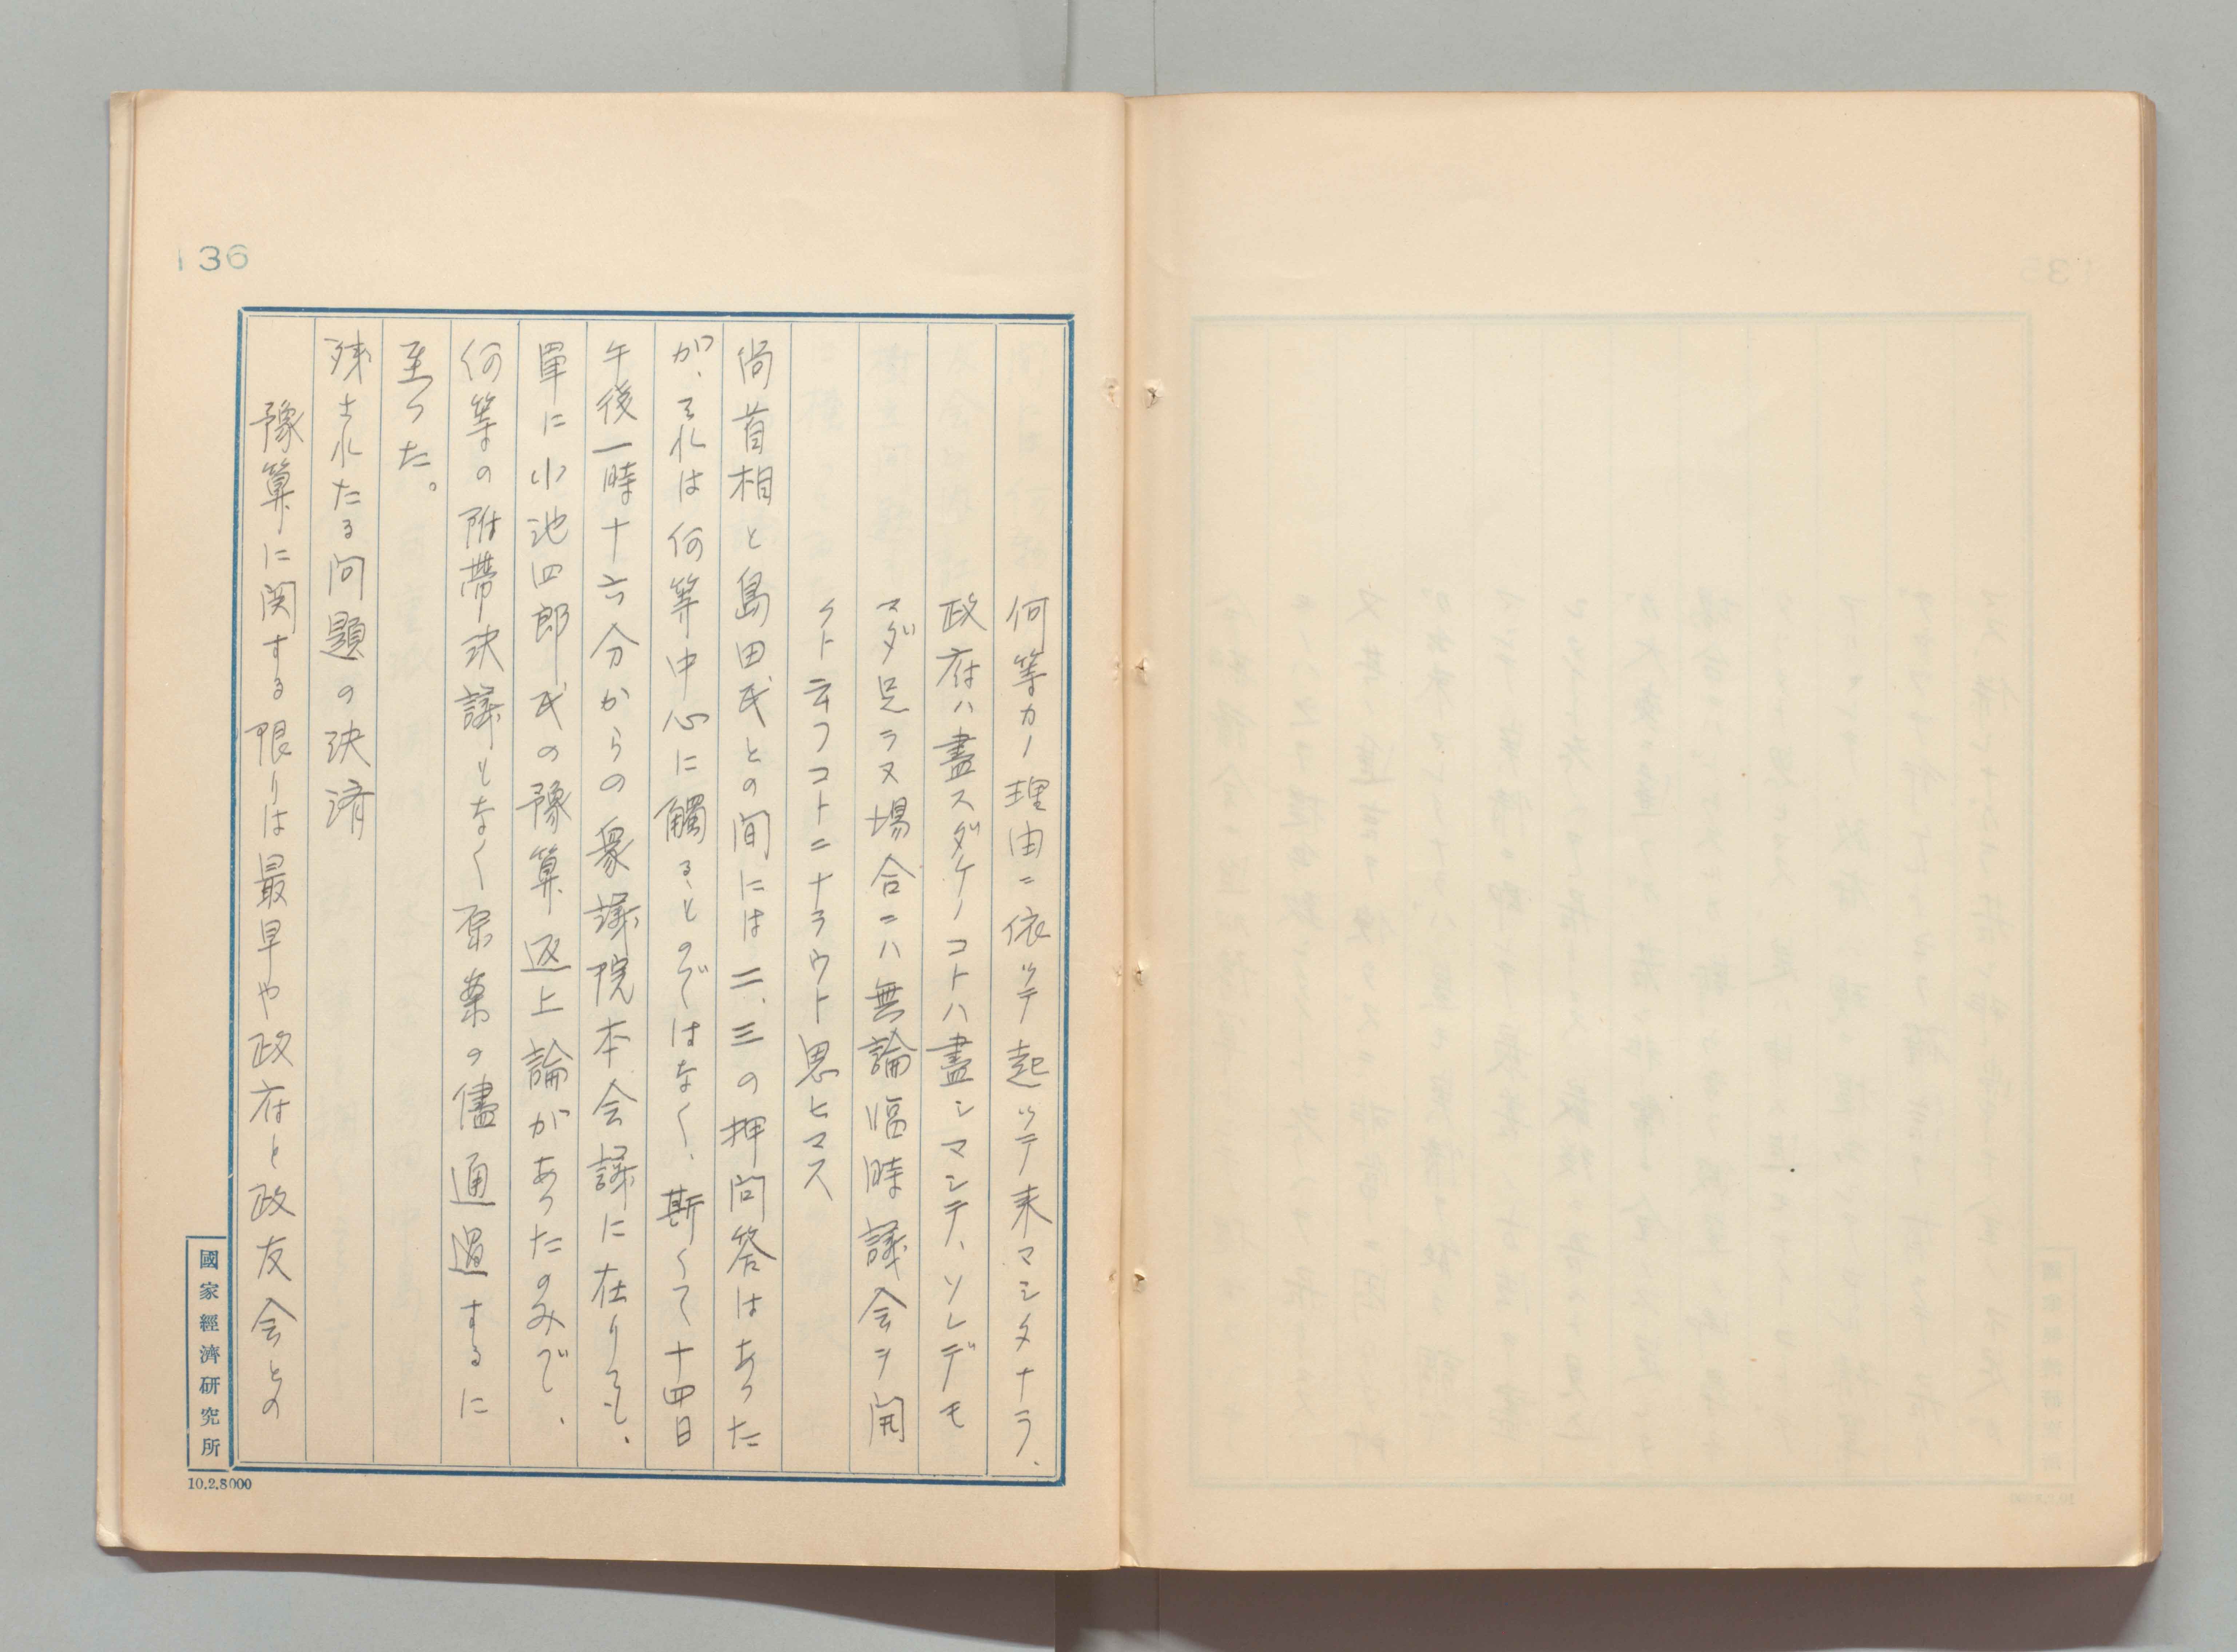 136
何等カノ理由ニ依ッテ起ッテ来マシタナラ、
政府ハ盡スダケノコトハ盡シマシテ、ソレデモ
マダ足ラヌ場合ニハ無論臨時議会ヲ開
クト云フコトニナラウト思ヒマス
尚首相と島田氏との間には二、三の押問答はあつた
が、それは何等中心に觸るゝものではなく、斯くて十四日
午後一時十六分からの衆議院本会議に在りても、
単に小池四郎氏の豫算返上論があつたのみで、
何等の附帯決議もなく原案の儘通過するに
至つた。
残されたる問題の決済
豫算に関する限りは最早や政府と政友会との
國家經濟研究所
10.2.8000